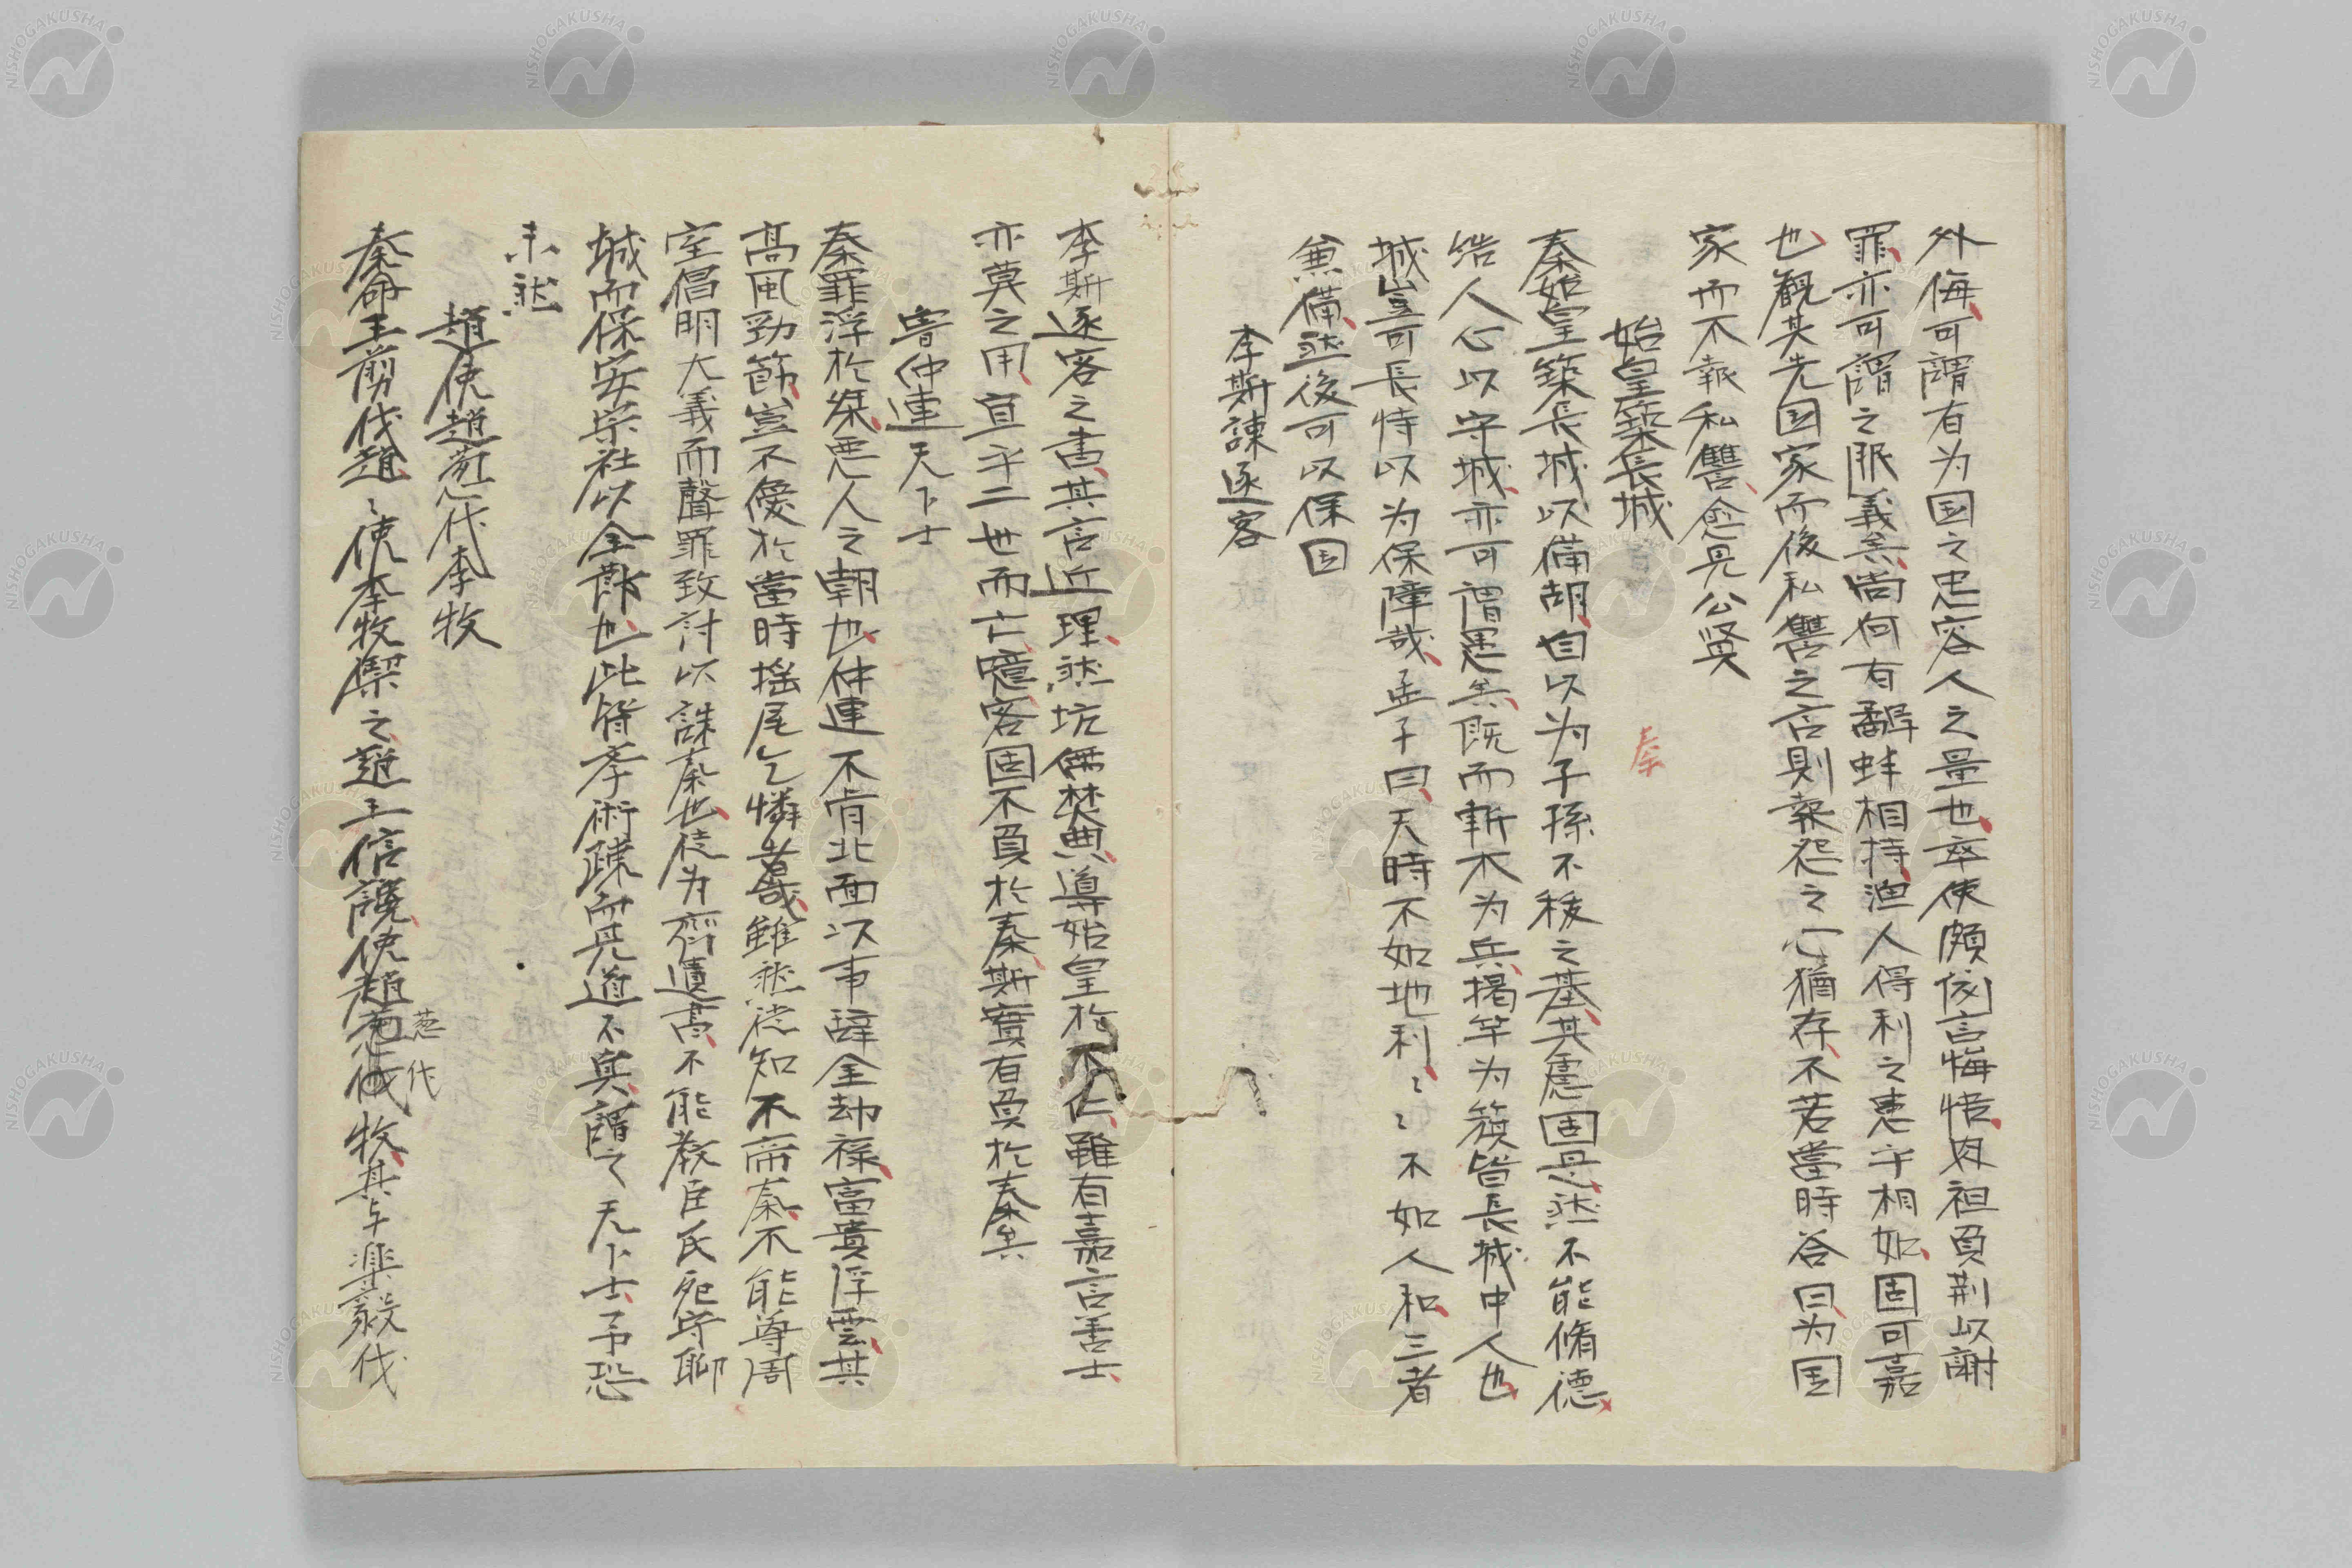 外侮可謂有为国之忠容人之量也卒使頗伏言悔悟肉袒負荆以謝
罪亦可謂之服義矣尚何有鷸蚌相持漁人得利之患乎相如固可嘉
也観其先国家而後私讐之言則報怨之心猶存不若當時答曰为国
家而不報私讐愈見公奨
始皇築長城
秦
秦始皇築長城以備胡自以为子孫不移之基其慮固是然不能脩德
结人心以守城亦可謂愚矣既而斬木为兵揭竿为旗皆長城中人也
城豈可長恃以为保障哉孟子曰天時不如地利ミミ不如人和三者
兼備然後可以保国
李斯諫逐客
李斯逐客之書其言近理然坑儒焚典導始皇於不仁雖有嘉言善士
亦莫之用宜乎二世而亡噫客固不負於秦斯實有負於秦矣
魯仲連天下士
秦罪浮於桀悪人之朝也仲連不肯北面以事辞金却禄富貴浮雲其
高風勁節豈不優於當時揺尾乞憐者哉雖然徒知不帝秦不能尊周
室倡明大義而聲罪致討以誅秦也徒为齊遺書不能教臣民死守聊
城而保安宗社以全節也此皆孝術疎而見道不真謂之天下士予恐
未然
趙使趙葱代李牧
秦命王剪伐趙ミ使李牧禦之趙王信讒使趙葱伐牧其与楽毅伐
葱代